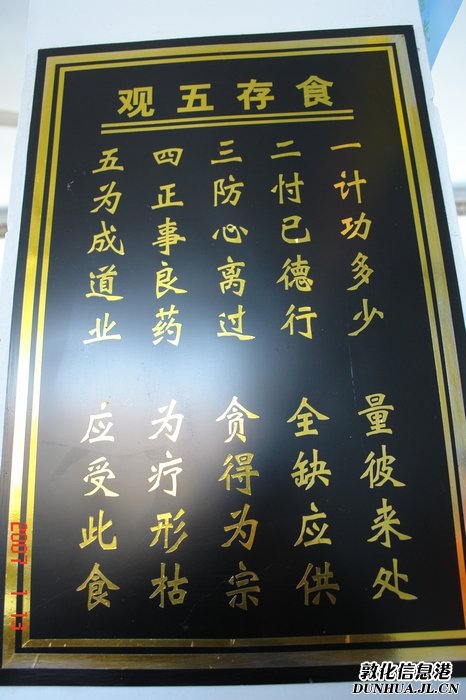 食存五观
一计功多少 量彼来处
二忖己德行 全缺应供
三防心离过 贪得为宗
四正事良药 为疗形枯
五为成道业 应受此食
2007 1 13
敦化信息港
DUNHUA.JL.CN